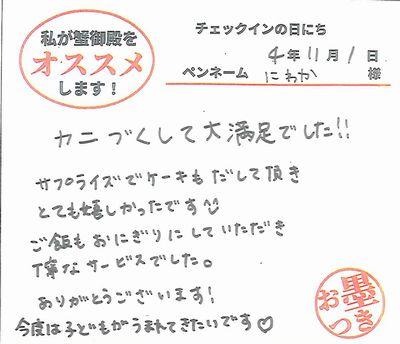 私が蟹御殿を
オススメ
します！
チェックインの日にち
4年11月1日
ペンネーム にわか 様
カニづくしで大満足でした!!
サプライズでケーキもだして頂き
とても嬉しかったです
ご飯もおにぎりにしていただき
丁寧なサービスでした。
ありがとうございます!
今度は子どもがうまれてきたいです♡
お墨つき